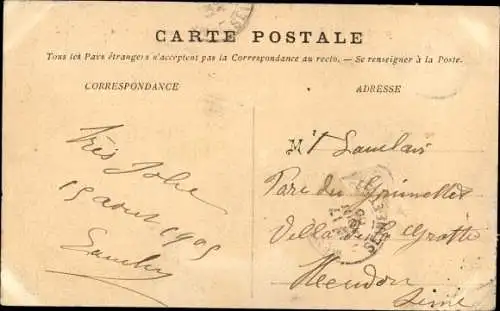 CARTE POSTALE
Tous les Pays étrangers n'acceptent pas la Correspondance au recto. — Se renseigner à la Poste.
CORRESPONDANCE
ADRESSE
Très Jolie
15 aout 1905
M
Parc du
Villa de la Grotte
Meudon
Seine